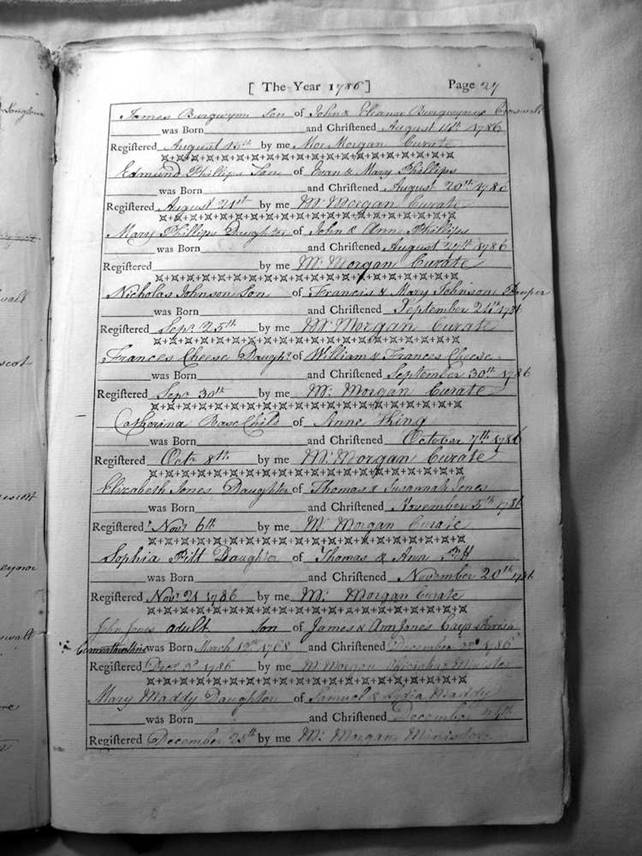 [ The Year 1786 ] Page 27
James Burgwynn Son of John & Eleanor Burgwynn
was Born and Christened August 14th 1786
Registered August 15th by me Morgan Curate
Edmund Phillips Son of Evan & Mary Phillips
was Born and Christened August 20th 1786
Registered August 21st by me M. Morgan Curate
Mary Phillips Daughter of John & Ann Phillips
was Born and Christened August 1786
Registered by me M. Morgan Curate
Nicholas Johnson Son of Francis & Mary Johnson
was Born and Christened September 24th 1786
Registered Sepr. 25th by me M. Morgan Curate
Frances Cheese Daughr. of William & Frances Cheese
was Born and Christened September 30th 1786
Registered Sepr 30th by me M. Morgan Curate
Catharina Base Child of Anne King
was Born October 7th 1786
Registered Octr. 8th by me M. Morgan Curate
Elizabeth Jones Daughter of Thomas & Susannah Jones
was Born and Christened November 5th 1786
Registered Novr 6th by me M. Morgan Curate
Sophia Pitt Daughter of Thomas & Ann Pitt
was Born and Christened November 20th 1786
Registered Novr. 21 1786 by me M. Morgan Curate
John Jones adult Son of James & Ann Jones
was Born March 1768 and Christened December 1786
Registered Decr. 1786 by me M. Morgan
Mary Maddy Daughter of Samuel & Lydia Maddy
was Born and Christened December
Registered December 25th by me M. Morgan Minister